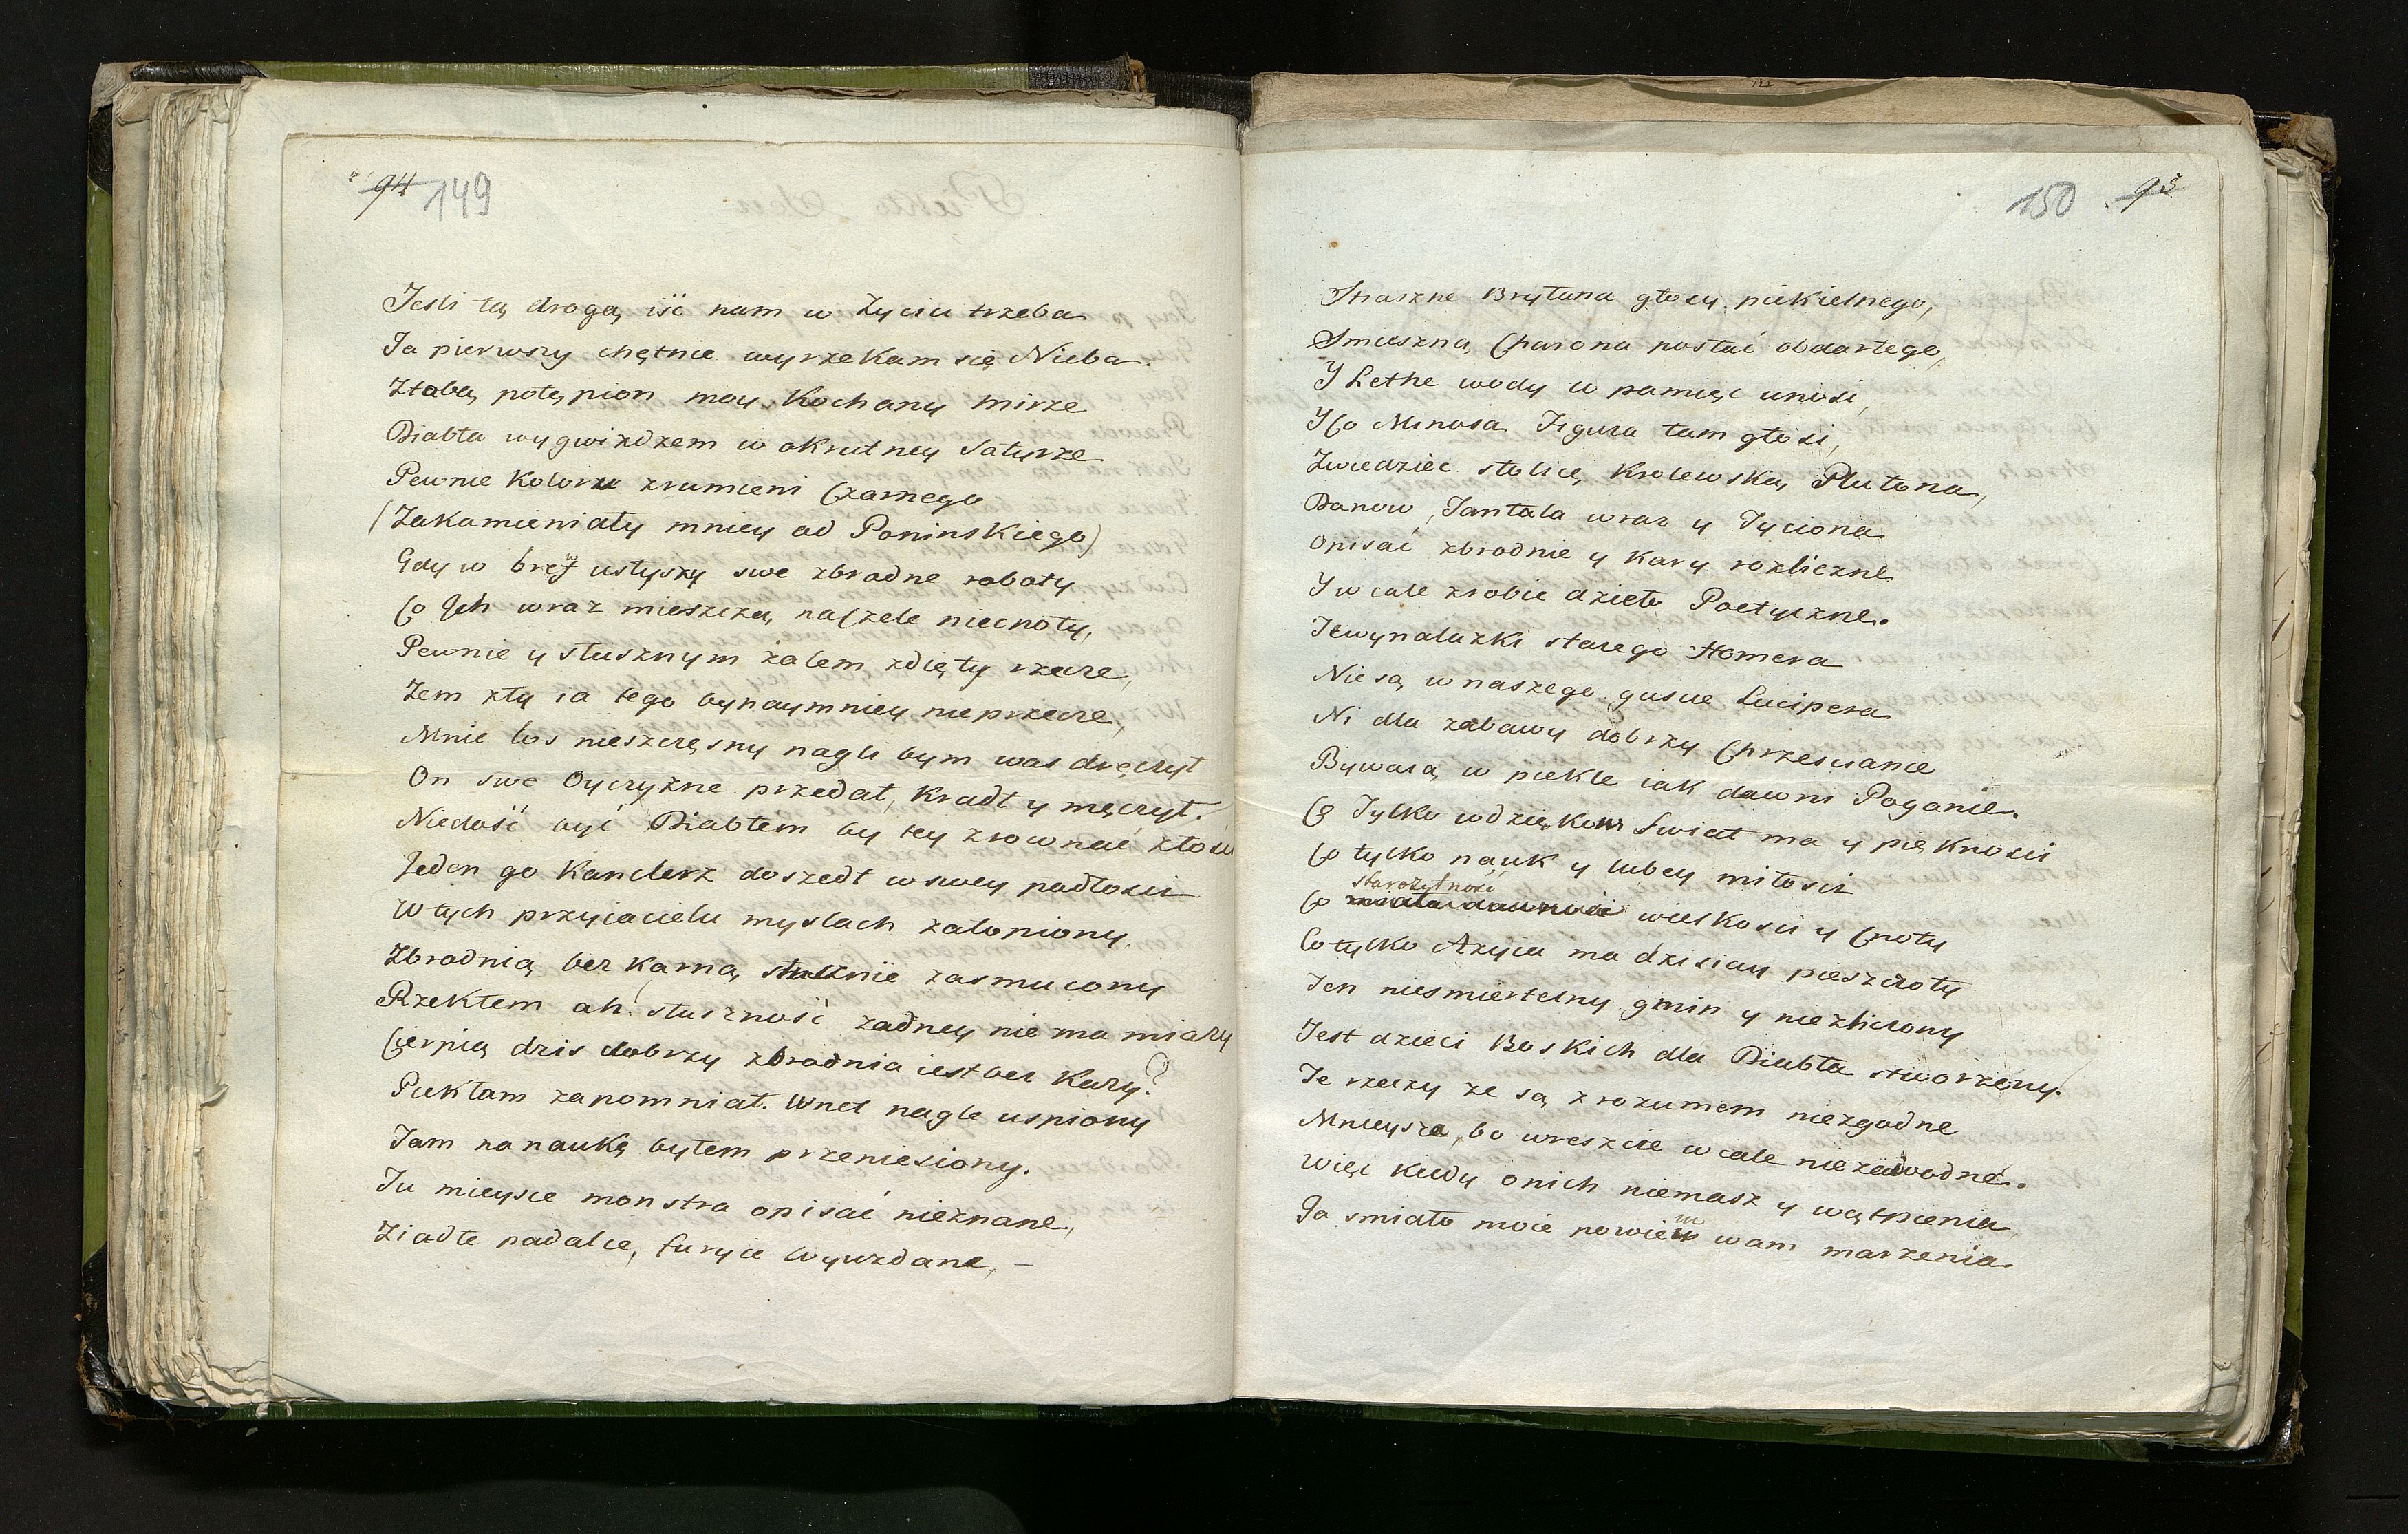 94 149
Jesli tą drogą iść nam w życiu trzeba
Ja pierwszy chętnie wyrzekam się Nieba.
Ztobą potępion moy kochany mirze
Diabła wygwizdzem w okrutney Satyrze
Pewnie koloru zrumieni Czarnego
(Zakamieniały mniey od Poninskiego)
Gdy w brey usłyszy swe zbrodne roboty
Co Ich wraz mieszczą, naCzele niecnoty,
Pewnie y słusznym żalem zdięty rzecze,
Żem zły ia tego bynaymniey nieprzecze,
Mnie los nieszczęsny nagli bym was dręczył
On swe Oyczyzne przedał, kradł y męczył.
Niedość być Diabłem by tey zrownać złości
Jeden go Kanclerz doszedł wswey podłości
W tych przyiacielu myslach zatopiony,
Zbrodnią bez karną słusznie zasmucony
Rzekłem ah! słuszność żadney nie ma miary
Cierpią dzis dobrzy zbrodnia iest bez kary?
Piekłam zapomniał. Wnet nagle uspiony
Tam na naukę byłem przeniesiony.
Tu mieysce monstra opisać nieznane,
Ziadłe padalce, furyie wyuzdane, –
150 95
Straszne Brytana głosy piekielnego,
Smieszną Charona postać obdartego,
Y Lethe wody w pamięć unosi,
Y Co Minosa Figura tam głosi,
Zwiedziec stolicę Krolewską Plutona,
Danow, Tantala wraz y Tyciona
Opisać zbrodnie y kary rozliczne
Y w cale zrobic dzieło Poetyczne.
Te wynalazki starego Homera
Nie są w naszego guscie Lucipera
Ni dla zabawy dobrzy Chrzescianie
Bywaią w piekle iak dawni Poganie.
Co Tylko wdzięków Swiat ma y piękności
Co tylko nauk y lubey miłości
starożytność
Co miała dawność wielkosci y Cnoty
Co tylko Azyia ma dzisiay pieszczoty
Ten niesmiertelny gmin y niezliczony
Jest dzieci Boskich dla Diabła stworzony.
Te rzeczy że są z rozumem niezgodne
Mnieysza, bo wreszcie w cale niezawodne.
Więc kiedy onich niemasz y wątpienia,
m
Ja smiało moie powiem wam marzenia